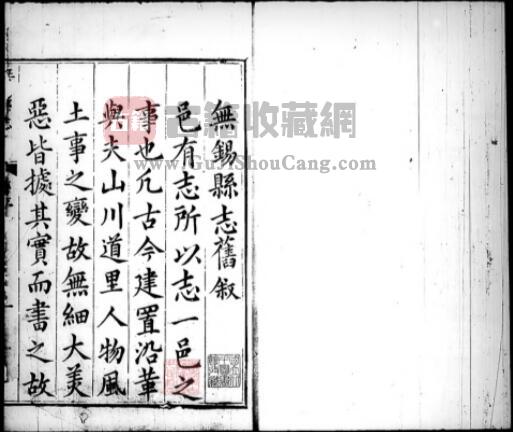 無錫縣志舊叙
邑有志所以志一邑之
事也凡古今建置沿革
與夫山川道里人物風
土事之變故無細大美
惡皆據其實而書之故
古籍收藏網
www.GuJiShouCang.com